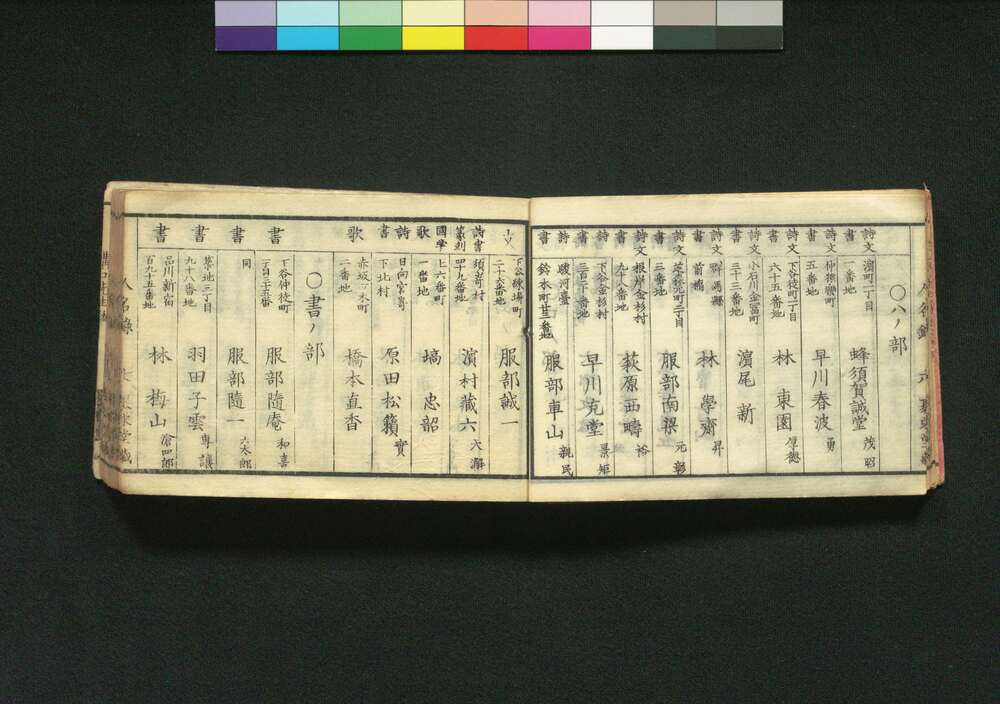 〇ハノ部
詩文書
濱町二丁目
一番地
蜂須賀誠堂 茂昭
詩文書
仲猿樂町
五番地
早川春波 勇
詩文書
下谷仲徒町一丁目
六十五番地
林 東園 厚德
詩文書
小石川金冨町
三十三番地
濵尾 新
詩文書
前橋
林 學齋 昇
詩文書
二丁目
三番地
服部南渠 元彰
詩文書
根岸金杉村
九十八番地
荻原西疇 裕
詩書
下谷金杉村
三百下番地
早川克堂 景矩
詩書
駿河臺
鈴木町廿二番地
服部車山 親民
下谷練塀町
二十六番地
服部誠一
詩書篆刻
須嵜村
四十九番地
濱村藏六 大澥
國學歌
七六番町
一番地
塙 忠韶
詩書
日向宮嵜
下北村
原田松籟 實
歌
赤坂一ツ木町
二番地
橋本直香
〇書ノ部
書
下谷仲徒町
二丁目三十五番
服部隨庵 和喜
書
同
服部隨一 六太郎
書
築地三丁目
九十八番地
羽田子雲 專讓
書
品川新宿
百九十五番地
林 梅山 滄四郎
人名錄